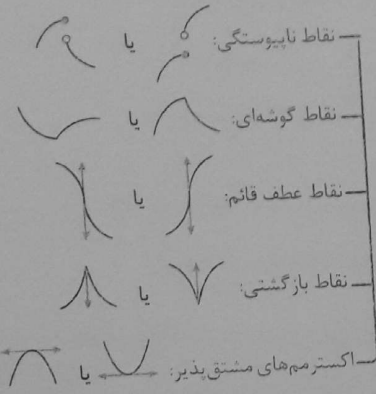 نقاط ناپیوستگی: یا
نقاط گوشه‌ای: یا
نقاط عطف قائم: یا
نقاط بازگشتی: یا
اکسترمم‌های مشتق‌پذیر: یا